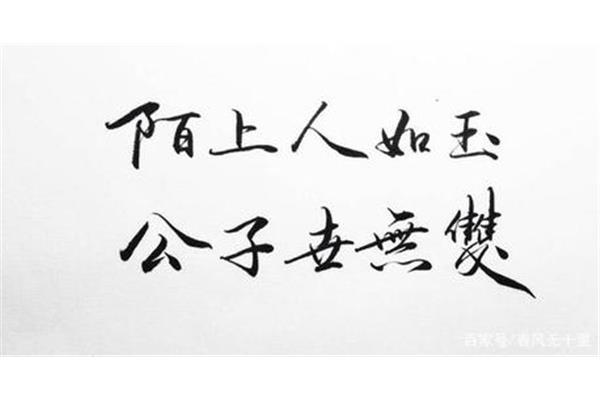 陌上人如玉
公子世無雙
百家号/春风无十里